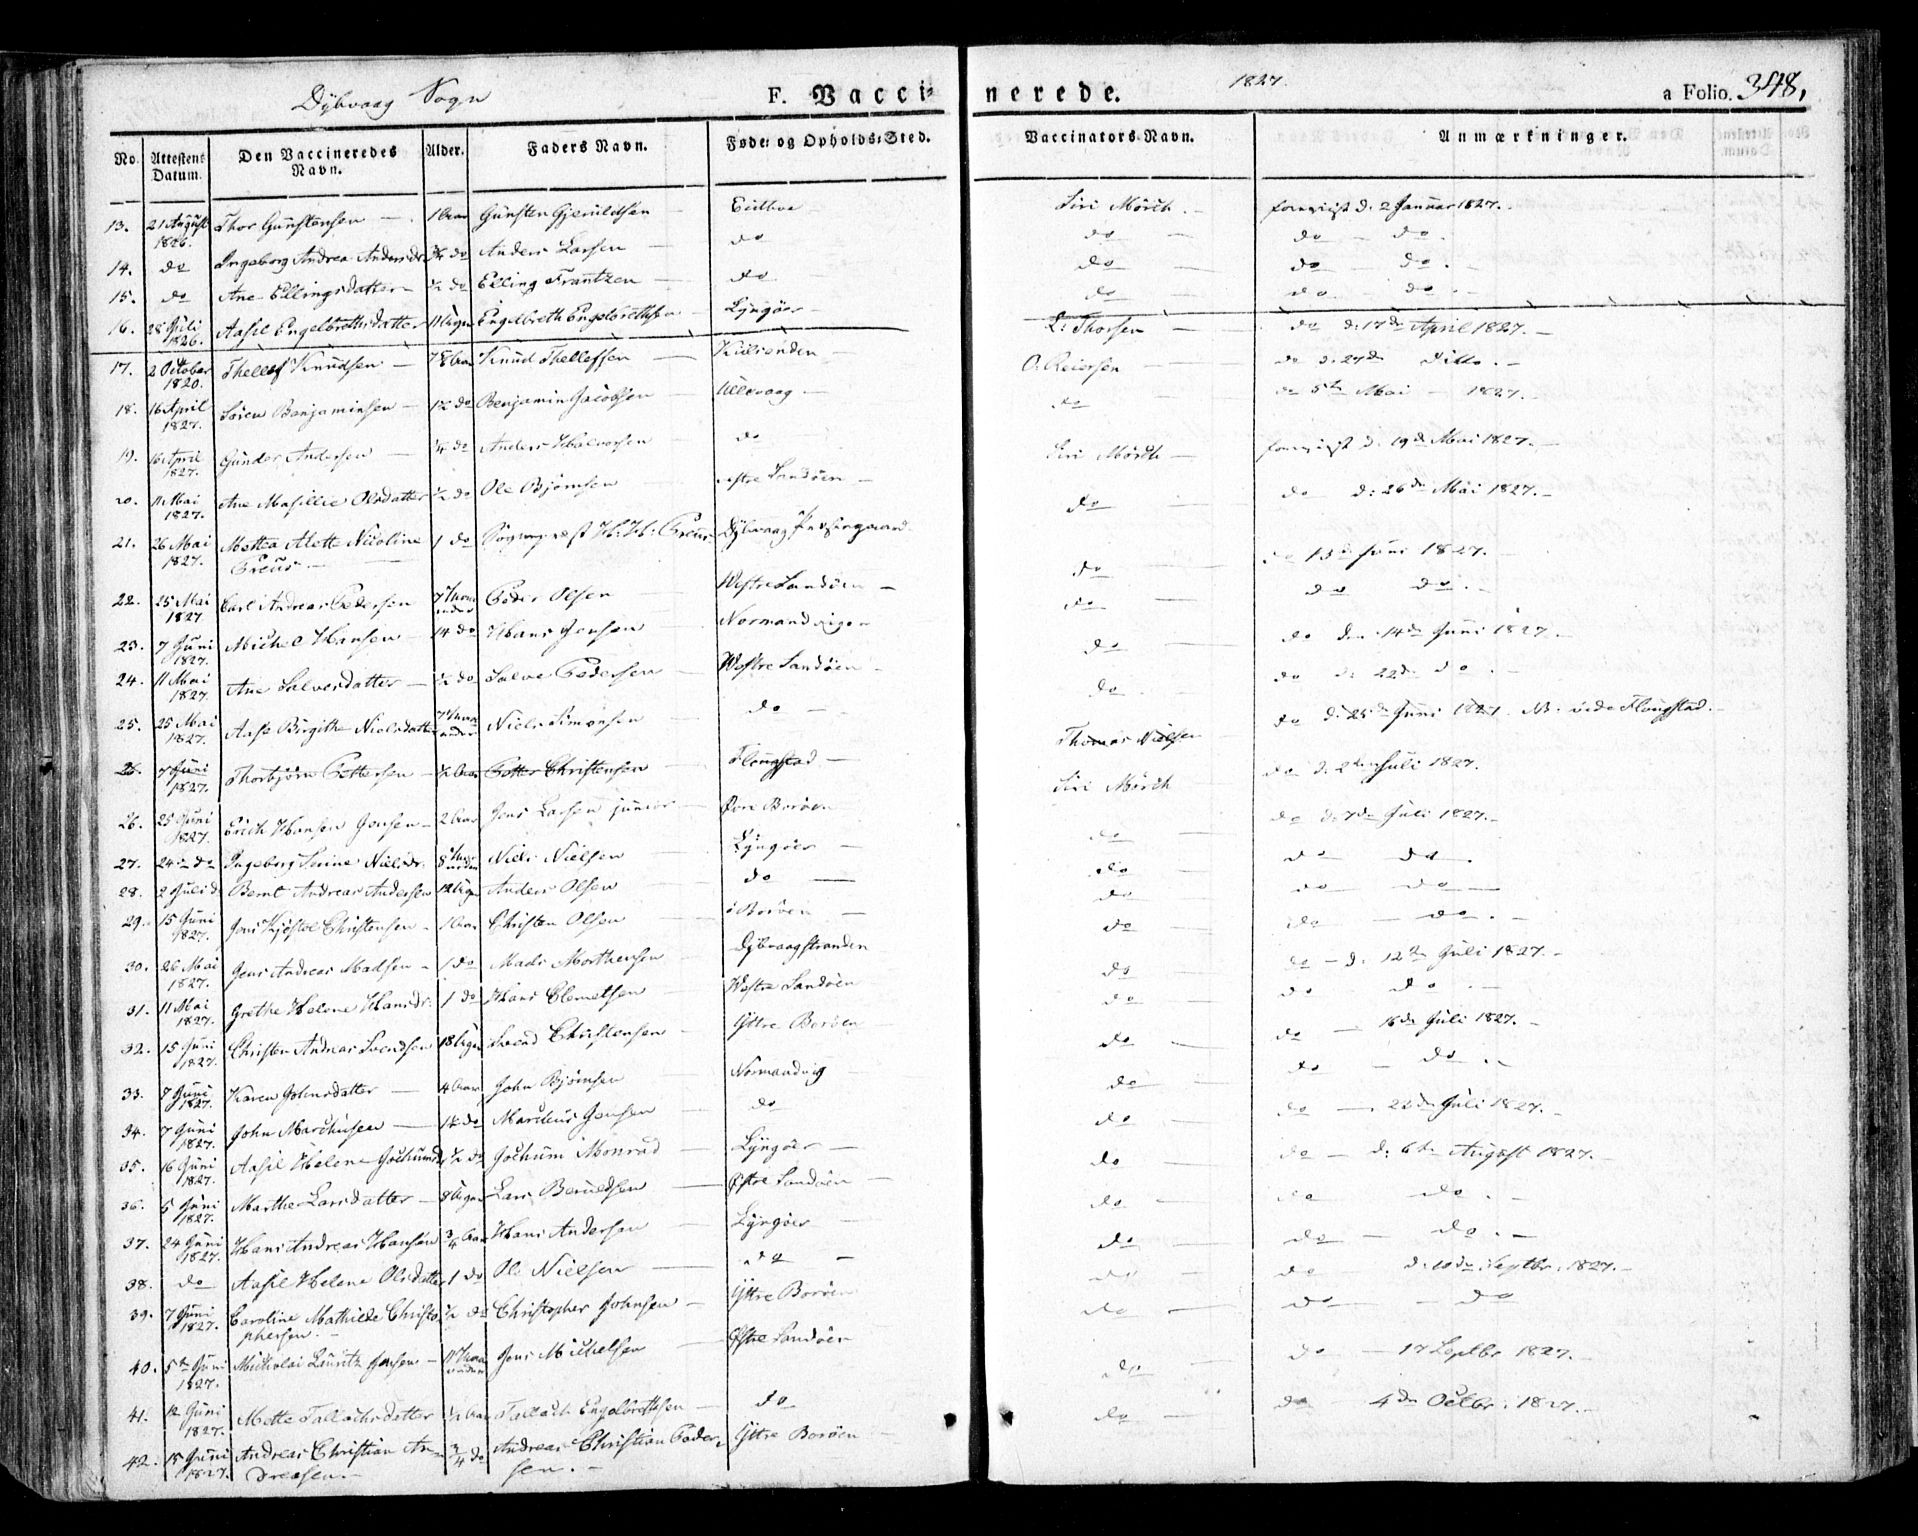 Dybvaag Sogn F. Vaccinerede. 1827. a Folio. 348,
No. Attestens Datum. Den Vaccineredes Navn. Alder. Faders Navn. Føde- og Opholds-Sted. Vaccinators Navn. Anmærkninger.
13. 21 August 1826. Thor Gunstensen 1 Aar Gunsten Gjeruldsen Eidboe Siri Mörch. foreviist d. 2 Januar 1827.
14. do Ingeborg Andrea Andersdr. 3/4 do Anders Larsen do do do do.
15. do Ane Ellingsdatter ½ do Elling Frantzen do do do do.
16. 28 Juli 1826. Aasil Engelbrethsdatter 11 Uger Engelbreth Engelbrethsen Lyngöer do do do.
17. 2 October 1820. Thellef Knudsen Aar Knud Thellefsen L: Thorsen do d: 17de April 1827.
18. 16 April 1827. Sören Benjaminsen 1½ do Benjamin Jacobsen Ullevaag O. Reiersen do d. 27de Ditto.
19. 16 April 1827. Gunder Andersen ¼ do Anders Halvorsen do do do 5te Mai 1827.
20. 11 Mai 1827. Ane Masillie Olsdatter ½ do Ole Björnsen Østre Sandöen Siri Mörch foreviist d. 19de Mai 1827.
21. 26 Mai 1827. Mettea Alette Nicoline 1 do Sognepræst H: H: Dybvaag Præstegaard do do d: 26de Mai 1827.
22. 25 Mai 1827 Carl Andreas Pedersen 7 Maaneder Peder Olsen Westre Sandöen do do 13de Juni 1827.
23. 7 Juni 1827. Michel Hansen 14 do Hans Jensen Normandvigen do do do.
24. 11 Mai 1827. Ane Salvesdatter ½ do Salve Pedersen Westre Sandöen do do den 14de Juni 1827.
25. 25 Mai 1827. Aase Birgithe Nielsdatter 7 Maaneder Niels Simonsen do do do d: 22de do.
26. 7 Juni 1827. Thorbjörn Pettersen ½ Aar Petter Christensen Flougstad Thomas Nielsen do d: 25de Juni 1827. NB: vide Flougstad.
26. 25 Juni 1827. Erich Hansen Jensen 2 Aar Jens Larsen junior Øvre Boröen Siri Mörch do d: 2den Juli 1827.
27. 24de do Ingeborg Serine Nielsdr. 8 Maaneder Niels Nielsen Lyngöer do do d: 7de Juli 1827.
28. 2 Juli do Bernt Andreas Andersen 12 Uger Anders Olsen do do do do.
29. 15 Juni 1827. Jens Kjöstel Christensen 1 Aar Christen Olsen Boröen do do do
30. 26 Mai 1827. Jens Andreas Madsen 1 do Mads Morthensen Dybvaagstranden do do do.
31. 11 Mai 1827. Grethe Helene Hansdr. 1 do Hans Clemetsen Westre Sandöen do do d. 12te Juli 1827.
32. 15 Juni 1827. Christen Andreas Svendsen 18 Uger Svend Christensen Yttre Boröen do do do
33. 7 Juni 1827. Karen Johnsdatter 4 Aar John Björnsen Normandvig do do 16de Juli 1827.
34. 7 Juni 1827. John Marcheusen 1½ do Marcheus Jensen do do do do.
35. 16 Juni 1827. Aasil Helene Jochumsdr ½ do Jochum Monrad Lyngöer do do 22de Juli 1827.
36. 5 Juni 1827. Marthe Larsdatter 8 Uger Lars Østre Sandöen do do d: 6te August 1827.
37. 24 Juni 1827. Hans Andreas Hansen 3/4 Aar Hans Andersen Lyngöer do do do.
38. do Aasil Helene Olsdatter 1 do Ole Nielsen do do do do.
39. 7 Juni 1827. Caroline Mathilde Christophersen. ½ do Christopher Johnsen Yttre Boröen do do d: 10de Septbr: 1827.
40. 5te Juni 1827. Nickolai Lauritz Jensen 11 Maaneder Jens Michelsen Østre Sandöen do do do
41. 12 Juni 1827. Mette Tallachsdatter ½ Aar Tallach Engelbrethsen do do do 17 Septbr 1827.
42. 15 Juni 1827. Andreas Christian Andreasen. 3/4 do Andreas Christian Pedersen. Yttre Boröen do do 4de Octbr: 1827.